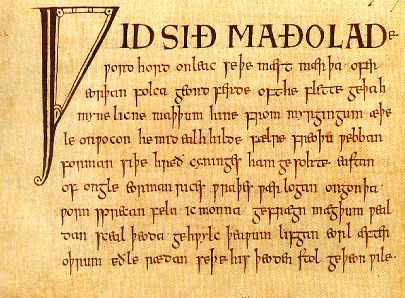 ǷIDSIÐ MAÐOLADE
ƿord hord onleac seþe mæst mærþa ofer
eorþan folca geond ferde oft he flette geþah
myne licne maþþum hine from myrgingum æþe
le onƿocon he mid ealh hilde fælre freoþu ƿebban
forman siþe hreð cyninges ham gesohte eastan
of ongle eorman rices ƿraþes ƿær logan ongon þa
ƿorn sprecan fela ic monna gefrægn mægþum ƿeal
dan sceal þeoda gehƿylc þeaƿum lifgan eorl æfter
oþrum eðle rædan seþe his þeoden stol geþeon ƿile.